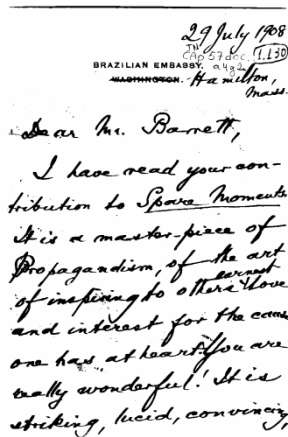 29 July 1908
JN
CAp 57 doc. I.130
a4g2
BRAZILIAN EMBASSY.
WASHINGTON. Hamilton,
Mass.
Dear Mr. Barrett,
I have read your con-
tribution to Spare Moments.
It is a master-piece of
Propagandism, of the art
of inspiring to others earnest love
and interest for the cause
one has at heart. You are
really wonderful! It is
striking, lucid, convincing,